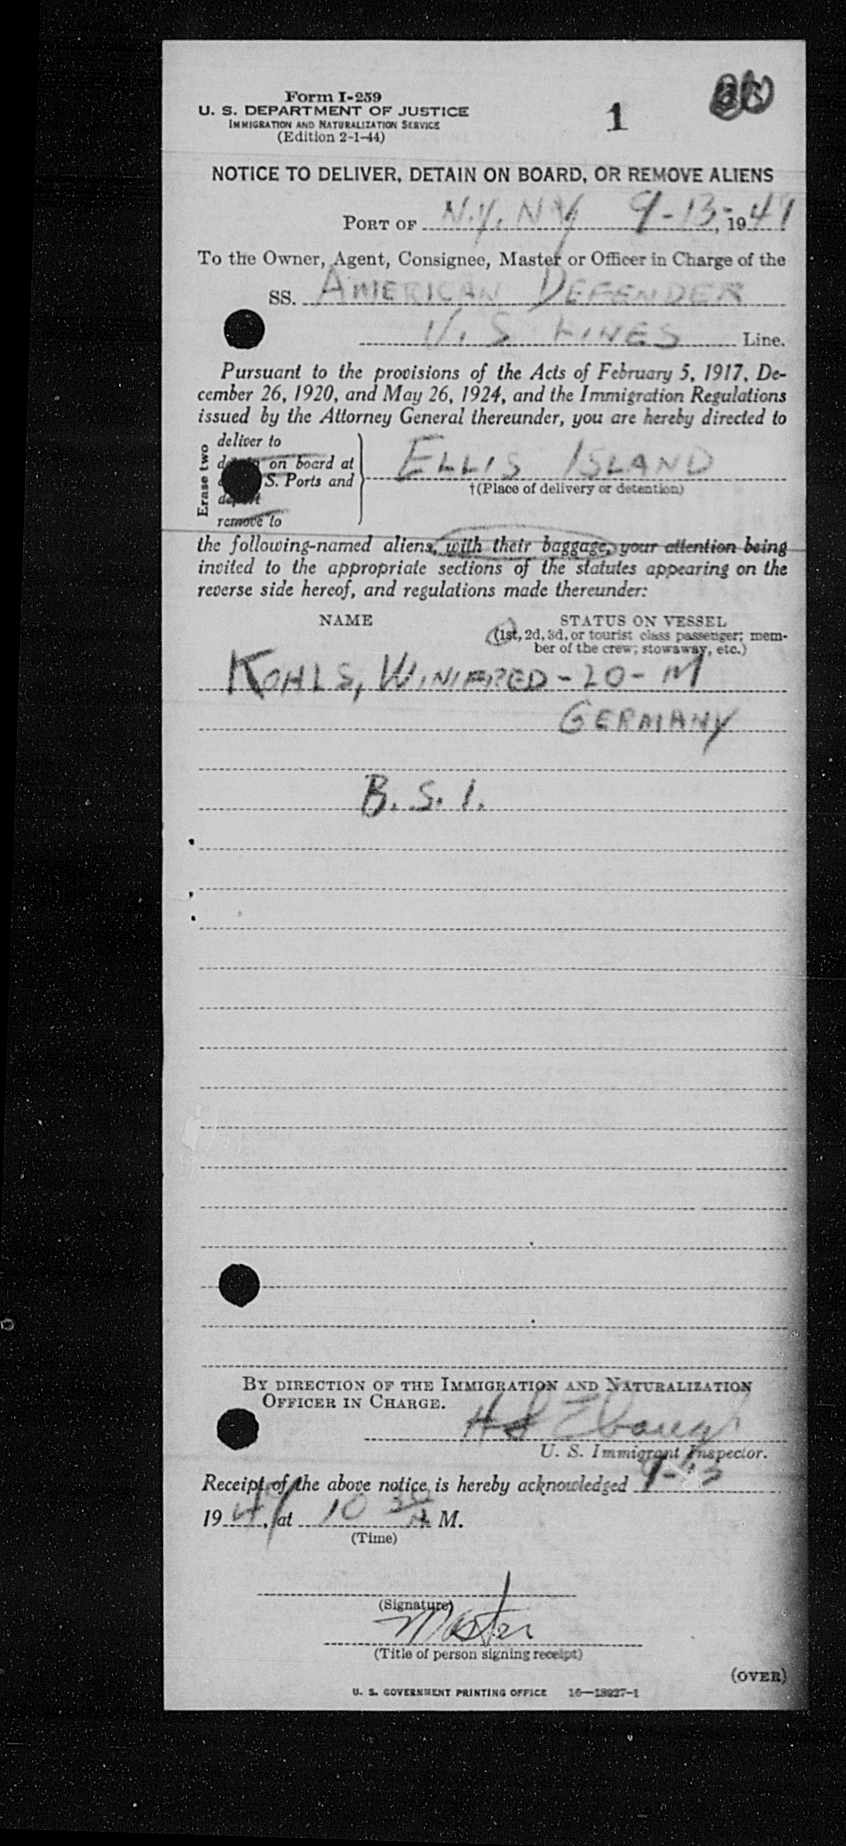 Form I-259
U. S. DEPARTMENT OF JUSTICE
IMMIGRATION AND NATURALIZATION SERVICE
(Edition 2-1-44)
1
NOTICE TO DELIVER, DETAIN ON BOARD, OR REMOVE ALIENS
PORT OF N.Y. NY 9-13-, 1947
To the Owner, Agent, Consignee, Master or Officer in Charge of the
SS. AMERICAN DEFENDER
U.S LINES Line.
Pursuant to the provisions of the Acts of February 5, 1917, De-
cember 26, 1920, and May 26, 1924, and the Immigration Regulations
issued by the Attorney General thereunder, you are hereby directed to
Erase two
deliver to
on board at
S. Ports and
remove to
ELLIS ISLAND
†(Place of delivery or detention)
the following-named aliens, with their baggage, your attention being
invited to the appropriate sections of the statutes appearing on the
reverse side hereof, and regulations made thereunder:
NAME STATUS ON VESSEL
(1st, 2d, 3d, or tourist class passenger; mem-
ber of the crew; stowaway, etc.)
KOHLS, WINIFRED - 20 - M
GERMANY
B. S. I.
BY DIRECTION OF THE IMMIGRATION AND NATURALIZATION
OFFICER IN CHARGE.
U. S. Immigrant Inspector.
Receipt of the above notice is hereby acknowledged 9-13
1947, at 10 30 A. M.
(Time)
(Signature)
Master
(Title of person signing receipt)
(OVER)
U. S. GOVERNMENT PRINTING OFFICE 16—18927-1